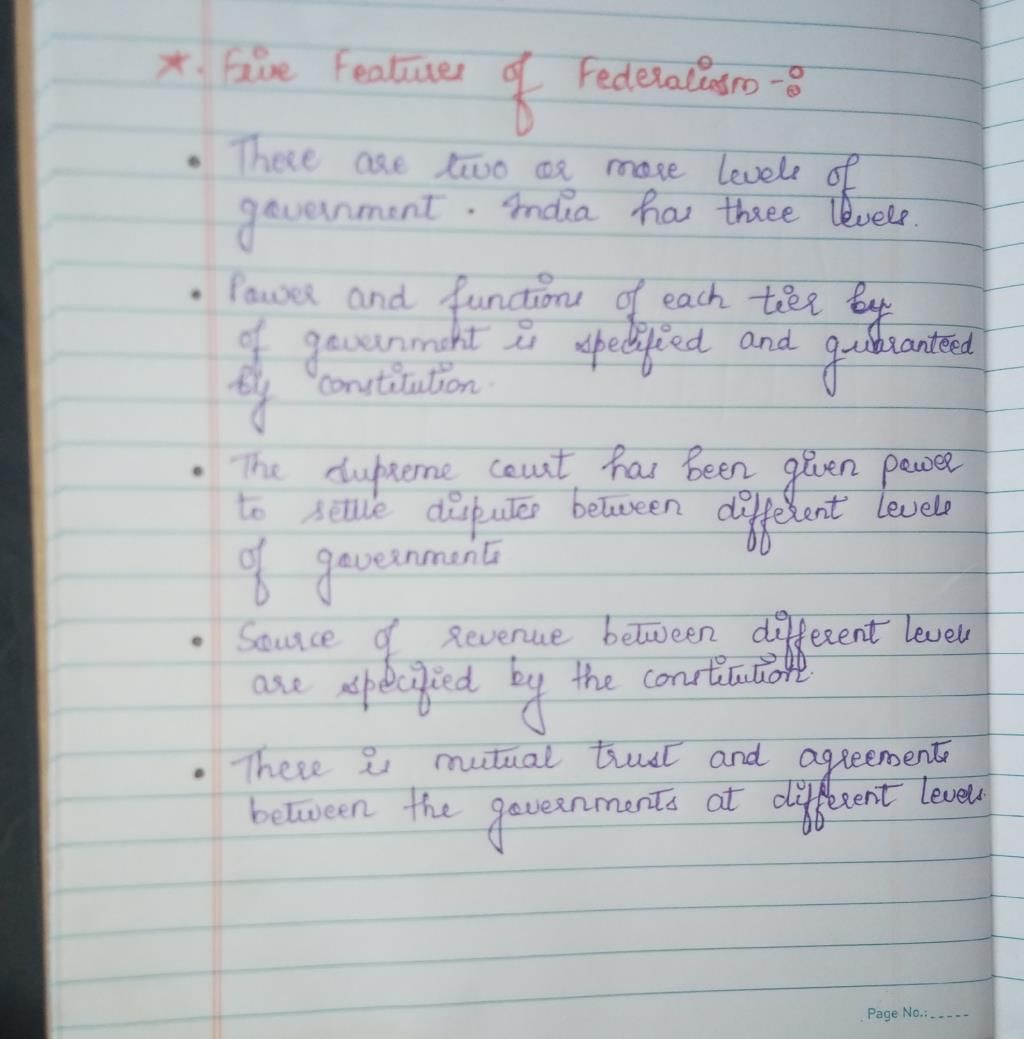 *. Five Features of Federalism -:
• There are two or more levels of
government. India has three levels.
• Power and functions of each tier by
of government is specified and guaranteed
by constitution.
• The supreme court has been given power
to settle disputes between different levels
of governments
• Source of revenue between different levels
are specified by the constitution.
• There is mutual trust and agreements
between the governments at different levels.
Page No.:_____